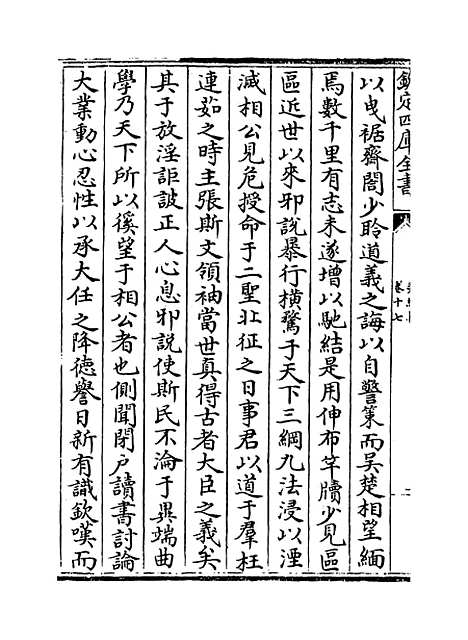 欽定四庫全書
卷十七
二
以曳裾齋閤少聆道義之誨以自警策而吳楚相望緬
焉數千里有志未遂增以馳結是用伸布竿牘少見區
區近世以來邪說暴行橫騖于天下三綱九法浸以湮
滅相公見危授命于二聖北征之日事君以道于羣枉
連茹之時主張斯文領袖當世真得古者大臣之義矣
其于放淫詎詖正人心息邪說使斯民不淪于異端曲
學乃天下所以徯望于相公者也側聞閉户讀書討論
大業動心忍性以承大任之降德譽日新有識欽嘆而